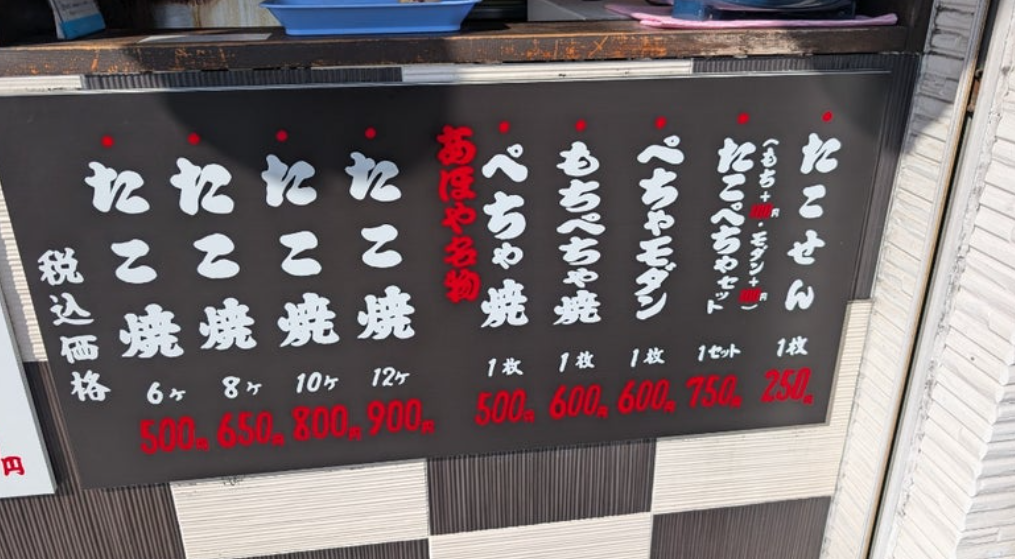 たこせん 1枚 250円
たこぺちゃセット 1セット 750円
(もち+100円・モダン+100円)
ぺちゃモダン 1枚 600円
もちぺちゃ焼 1枚 600円
ぺちゃ焼 1枚 500円
あほや名物
たこ焼 12ケ 900円
たこ焼 10ケ 800円
たこ焼 8ケ 650円
たこ焼 6ケ 500円
税込価格
円